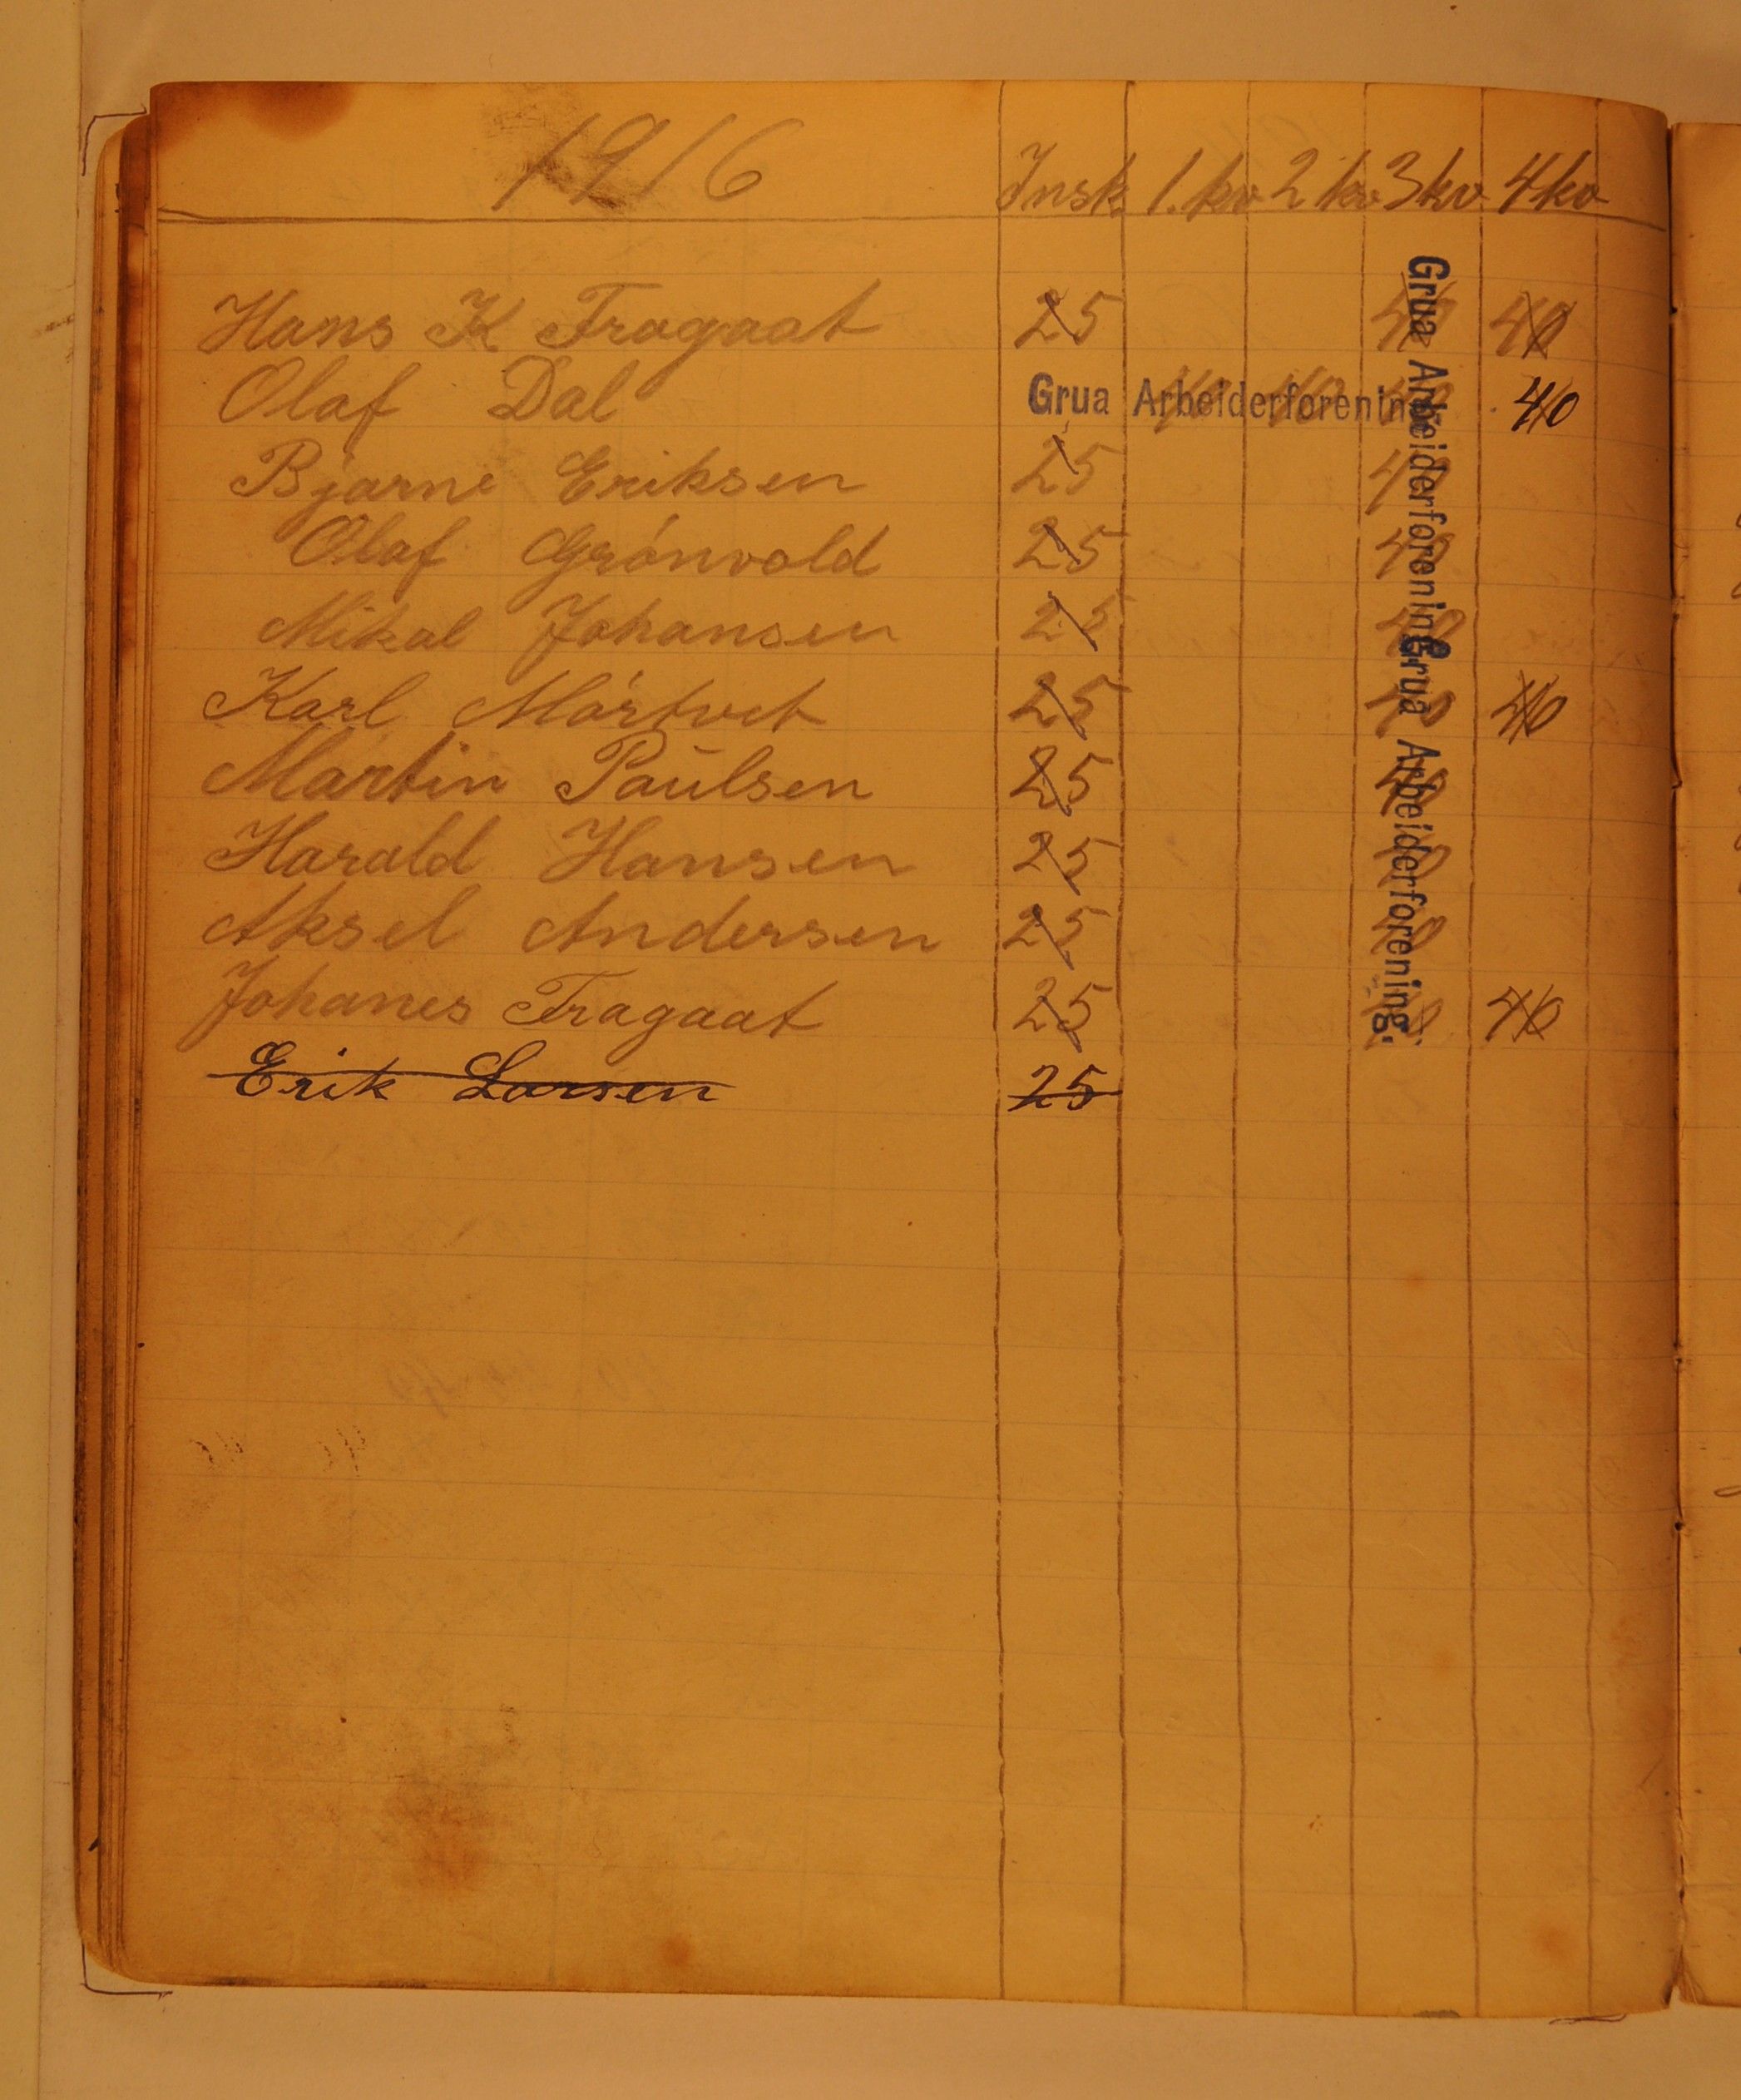 1916 Insk. 1.kv 2 kv 3 kv. 4 kv
Hans K Fragaat 25 40 40
Olaf Dal 40 40 40 40
Grua Arbeiderforening
Bjarne Eriksen 25 40
Olaf Grónvold 25 40
Mikal Johansen 25 40
Karl Mórtvet 25 40 40
Martin Paulsen 25 40
Harald Hansen 25 40
Aksel Andersen 25 40
Johanes Fragaat 25 40 40
Erik Larsen 25
Grua Arbeiderforening
Grua Arbeiderforening.